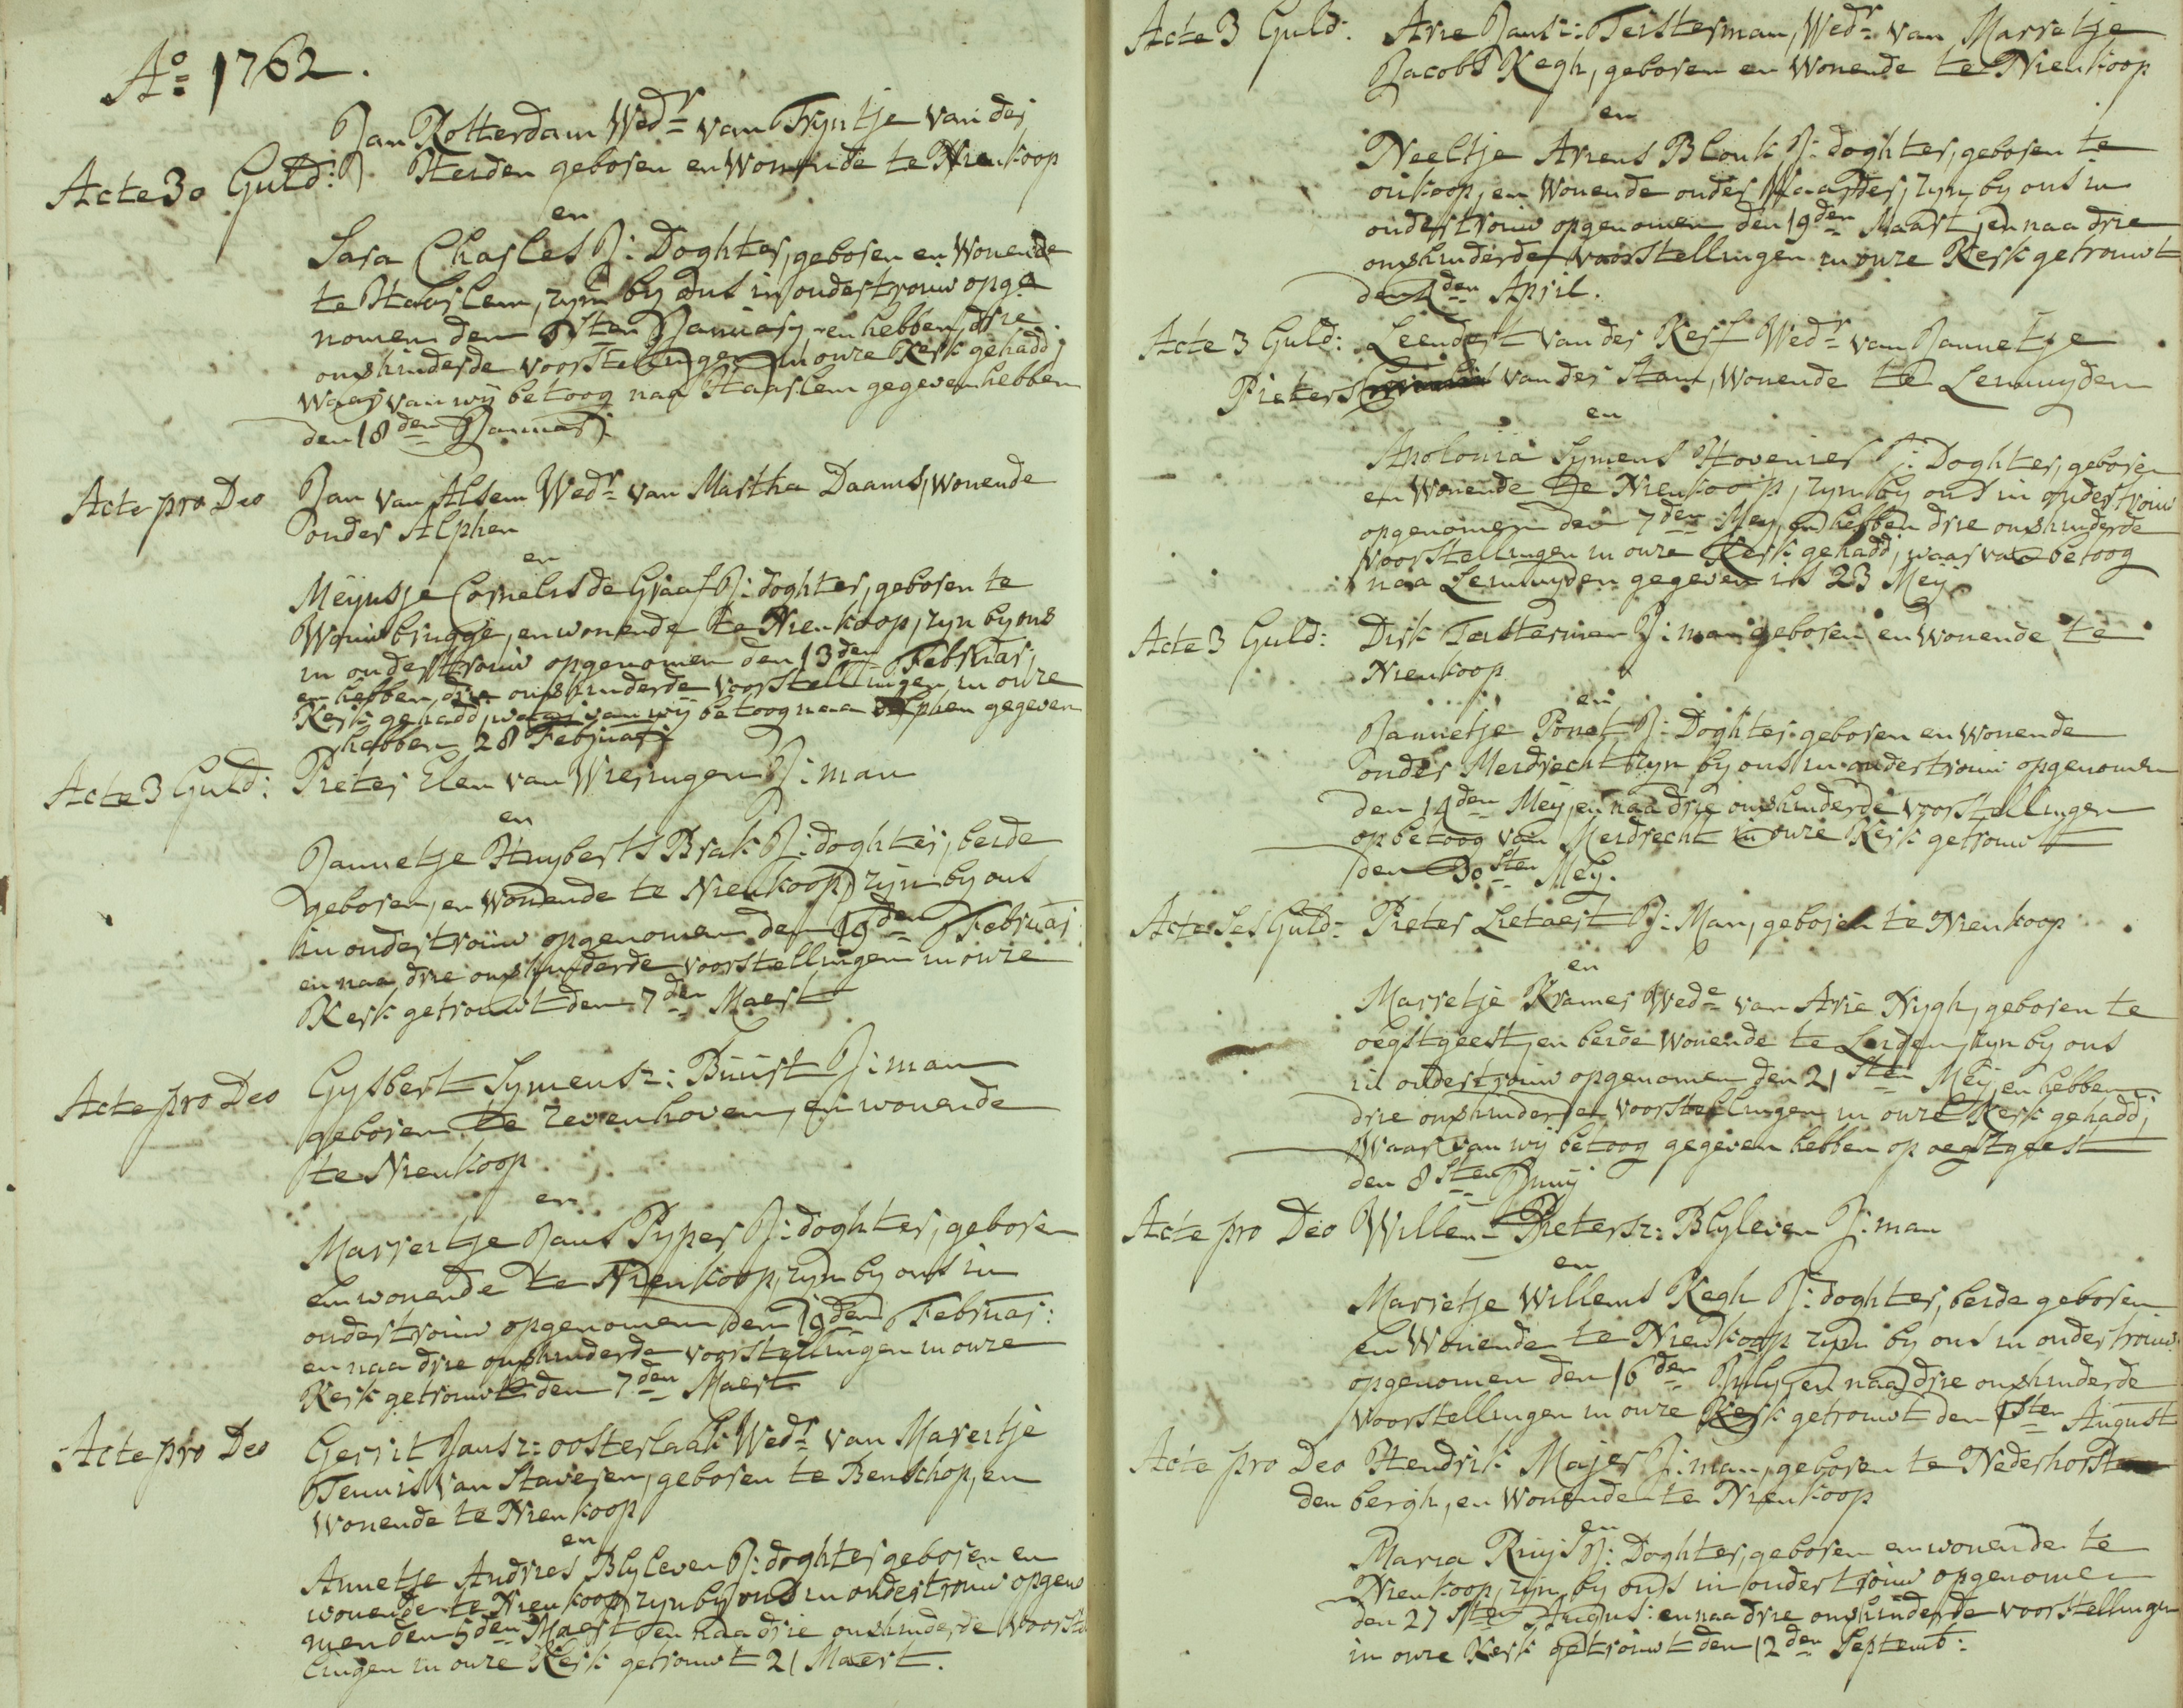 Ao 1762.
Jan Rotterdam Wedr van Tryntje van der
Acte 30 Guld: Heiden geboren en Wonende te Nieukoop
en
Sara Charles J: Doghter, geboren en Wonende
te Haarlem, zyn by ons in ondertrouw opge
nomen den 1sten January en hebben drie
onverhinderde voorstellingen in onze Kerk gehadd;
waar van wij betoog naa Haarlem gegeven hebben
den 18den Januarj
Acte pro Deo Jan van Alsem Wedr van Martha Daams, Wonende
onder Alphen
en
Meijnsje Cornelis de Graaf J: doghter, geboren te
Woubrugge, en wonende te Nieukoop, zyn by ons
in ondertrouw opgenomen den 13den Februar;
en hebben drie onverhinderde voorstellingen in onze
Kerk gehadd; waar van wij betoog naa Alphen gegeven
hebben 28 Februarj
Acte 3 Guld: Pieter Elen van Wieringen J: man
en
Jannetje Huyberts Brak J: doghter, beide
geboren, en wonende te Nieukoop, zijn by ons
in ondertrouw opgenomen den 19den Februar
en naa drie onverhinderde voorstellingen in onze
Kerk getrouwt den 7den Maert
Acte pro Deo Gysbert Symensz: Buurt J: man
geboren te Zevenhoven, en wonende
te Nieukoop
en
Marreitje Jans Pyper J: doghter, geboren
en wonende te Nieukoop, zyn by ons in
ondertrouw opgenomen den 19den Februar:
en naa drie onverhinderde voorstellingen in onze
Kerk getrouwt den 7den Maert
Acte pro Deo Gerrit Jansz: oosterlaak Wedr van Mareitje
Teunis van Staveren, geboren te Benschop, en
Wonende te Nieukoop
en
Annetje Andries Blyleven J: doghter geboren en
wonende te Nieukoop, zyn by ons in ondertrouw opgeno
men den 5den Maert en naa drie onverhinderde voorstel
lingen in onze Kerk getrouwt 21 Maert.
Acte 3 Guld: Arie Jansz: Teisterman, Wedr van Marretje
Jacobs Kegh, geboren en Wonende te Nieukoop
en
Neeltje Ariens Blonk J: doghter, geboren te
oukoop, en Wonende onder Waarder, zyn by ons in
ondertrouw opgenomen den 19den Maart, en naa drie
onverhinderde voorstellingen in onze Kerk getrouwt
den 4den April.
Acte 3 Guld: Leendert van der Kerf Wedr van Jannetje
Pieters van der Stam, Wonende te Leimuyden
en
Apolonia Symens Hovenier J: Doghter, geboren
en Wonende te Nieukoop, zyn by ons in ondertrouw
opgenomen den 7den Mey, en hebben drie onverhinderde
voorstellingen in onze Kerk gehadd; waar van betoog
naa Leimuyden gegeven is 23 Meij
Acte 3 Guld: Dirk Teisterman J: man geboren en Wonende te
Nieukoop
en
Jannetje Ponet J: Doghter geboren en Wonende
onder Meidrecht zyn by ons in ondertrouw opgenomen
den 14den Meij, en naa drie onverhinderde voorstellingen
op betoog van Meidrecht in onze Kerk getrouwt
den 30sten Meij.
Acte ses Guld: Pieter Lietaert J: Man, geboren te Nieukoop
en
Marretje Kramer Wede van Arie Nygh, geboren te
oegstgeest, en beide Wonende te Leiden, zyn by ons
in ondertrouw opgenomen den 21sten Meij en hebben
drie onverhinderde voorstellingen in onze Kerk gehadd;
Waar van wij betoog gegeven hebben op oegstgeest
den 8sten Junij
Acte pro Deo Willem Pietersz: Blyleven J: man
en
Marretje Willems Kegh J: doghter, beide geboren
en Wonende te Nieukoop zyn by ons in ondertrouw
opgenomen den 16den July, en naa drie onverhinderde
voorstellingen in onze Kerk getrouwt den 1sten August
Acte pro Deo Hendrik Majer J: man, geboren te Nederhorst
den bergh, en Wonende te Nieukoop
en
Maria Ruijs J: Doghter, geboren en wonende te
Nieukoop, zyn by ons in ondertrouw opgenomen
den 27sten Augus: en naa drie onverhinderde voorstellingen
in onze Kerk getrouwt den 12den Septemb: